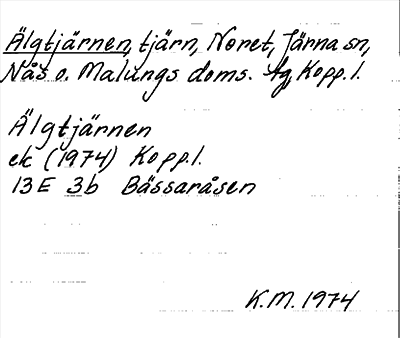 Älgtjärnen, tjärn, Noret, Järna sn,
Nås o. Malungs doms. tg, Kopp. l.
Älgtjärnen
ek (1974) Kopp. l.
13E 3b Bässaråsen
K.M. 1974